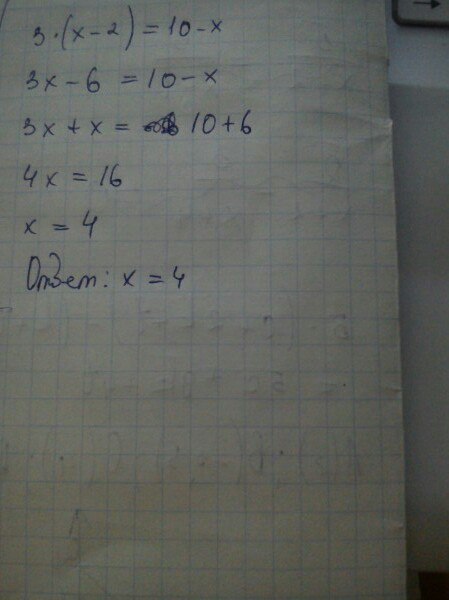 3·(x-2)=10-x
3x-6=10-x
3x+x=10+6
4x=16
x=4
Ответ: x=4